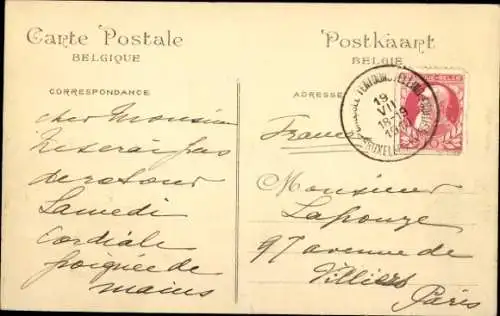 Carte Postale
BELGIQUE
CORRESPONDANCE
cher Monsieur
Ne serai pas
de retour
Samedi
Cordiale
poignée de
mains
Postkaart
BELGIË
ADRESSE
TENTOONSTELLING
19
VII
18-19
1910
BRUXELLES
France
Monsieur
Lapouze
97 avenue de
Villiers
Paris